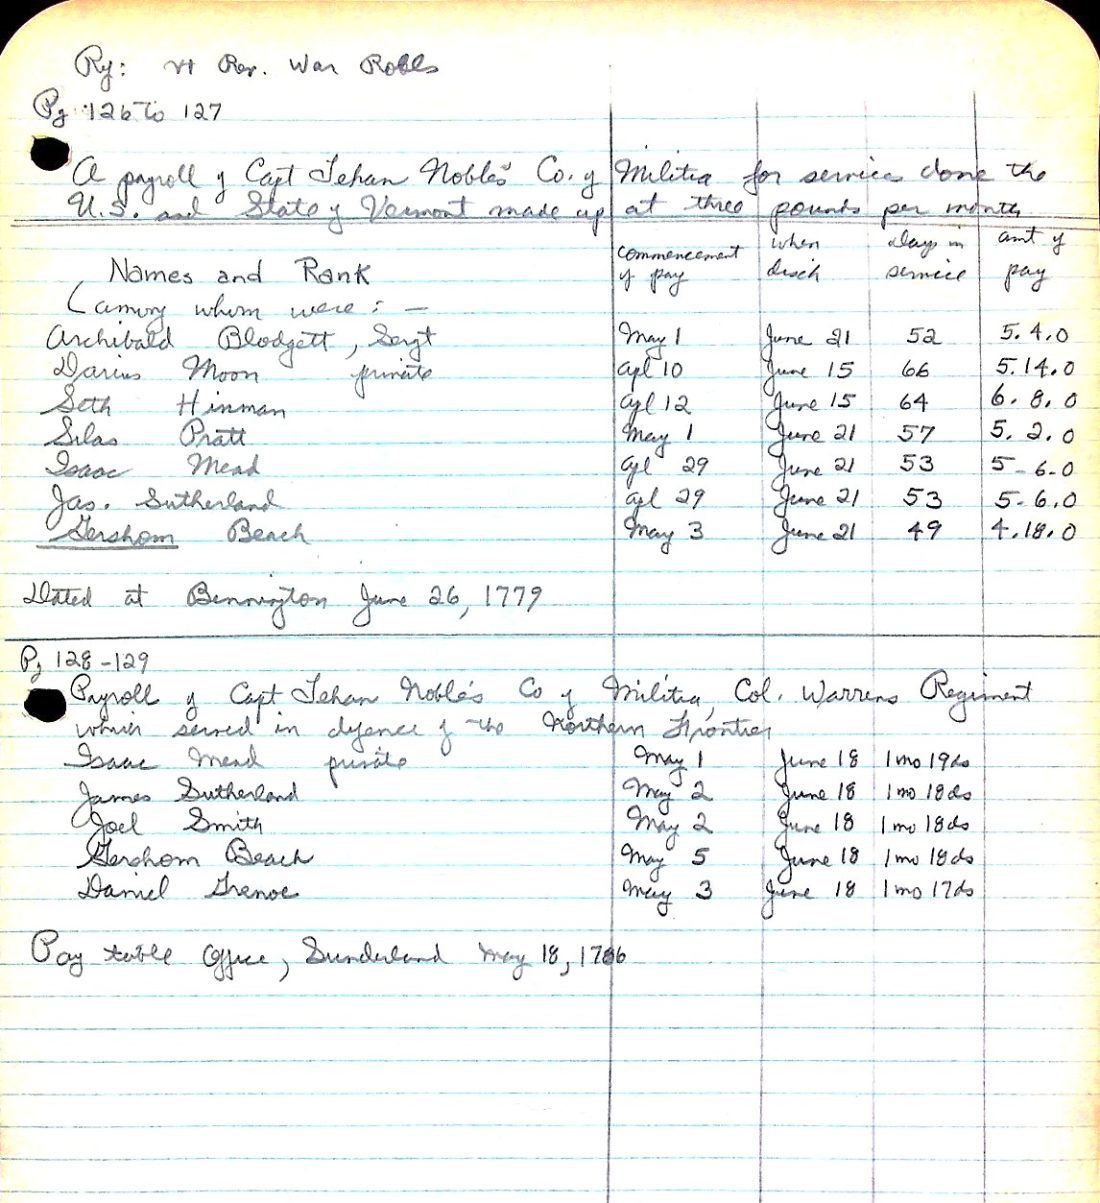 Ry: Vt Rev. War Rolls
Pg 126 to 127
A payroll of Capt Jehan Noble's Co. of Militia for service done the
U.S. and State of Vermont made up at three pounds per month
Names and Rank commencement of pay when disch days in service amt of pay
(among whom were: —
Archibald Blodgett, Sergt May 1 June 21 52 5.4.0
Darius Moon private apl 10 June 15 66 5.14.0
Seth Hinman apl 12 June 15 64 6.8.0
Silas Pratt May 1 June 21 57 5.2.0
Isaac Mead apl 29 June 21 53 5-6.0
Jas. Sutherland apl 29 June 21 53 5-6.0
Gershom Beach May 3 June 21 49 4.18.0
Dated at Bennington June 26, 1779
Pg 128-129
Payroll of Capt Jehan Noble's Co of Militia, Col. Warrens Regiment
which served in defence of the Northern Frontier
Isaac Mead private May 1 June 18 1 mo 19 ds
James Sutherland May 2 June 18 1 mo 18 ds
Joel Smith May 2 June 18 1 mo 18 ds
Gershom Beach May 5 June 18 1 mo 18 ds
Daniel May 3 June 18 1 mo 17 ds
Pay table Office, Sunderland May 18, 1786